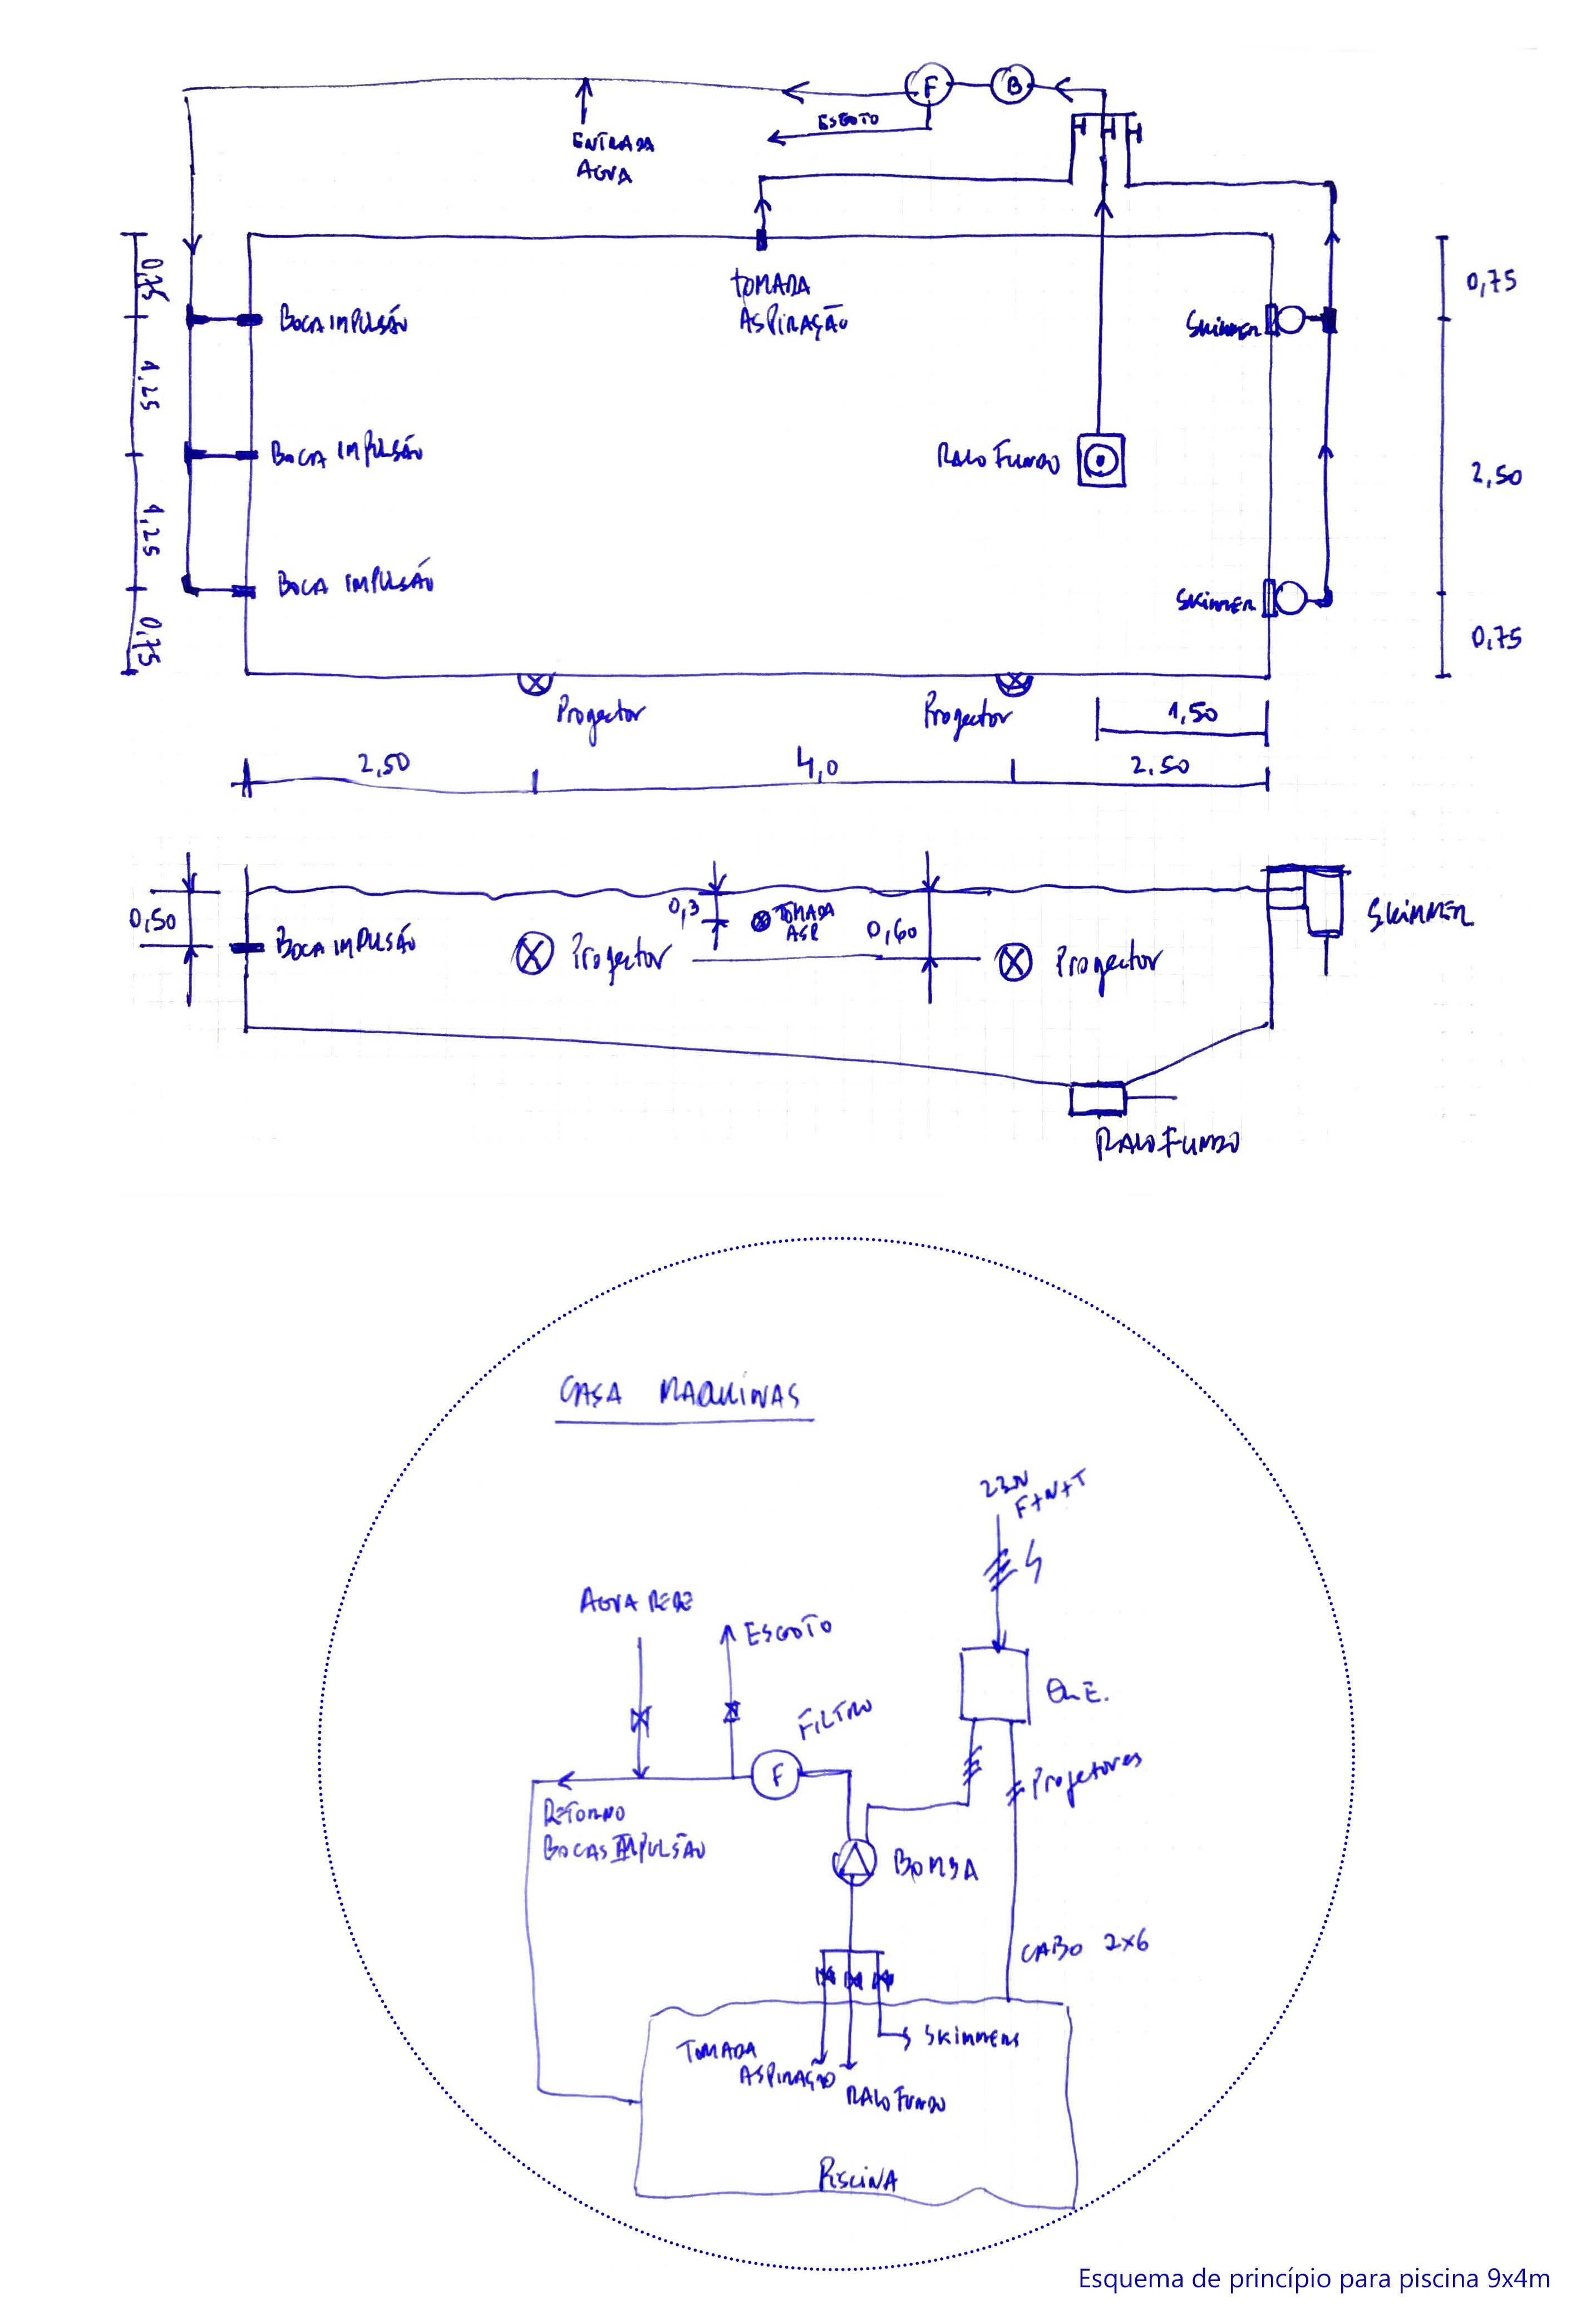 F
B
ESGOTO
ENTRADA
AGUA
0,75
1,25
1,25
0,75
TOMADA
ASPIRAÇÃO
BOCA IMPULSÃO
BOCA IMPULSÃO
BOCA IMPULSÃO
SKIMMER
RALO FUNDO
SKIMMER
0,75
2,50
0,75
Projector
Projector
1,50
2,50
4,0
2.50
0,50
BOCA IMPULSÃO
Projector
0,3
TOMADA
ASP
0,60
Projector
SKIMMER
RALO FUNDO
CASA MAQUINAS
F+N+T
AGUA REDE
ESGOTO
FILTRO
F
Q.E.
Projetores
RETORNO
BOCAS IMPULSÃO
BOMBA
CABO 2x6
TOMADA
ASPIRAÇÃO
RALO FUNDO
SKIMMERS
PISCINA
Esquema de princípio para piscina 9x4m